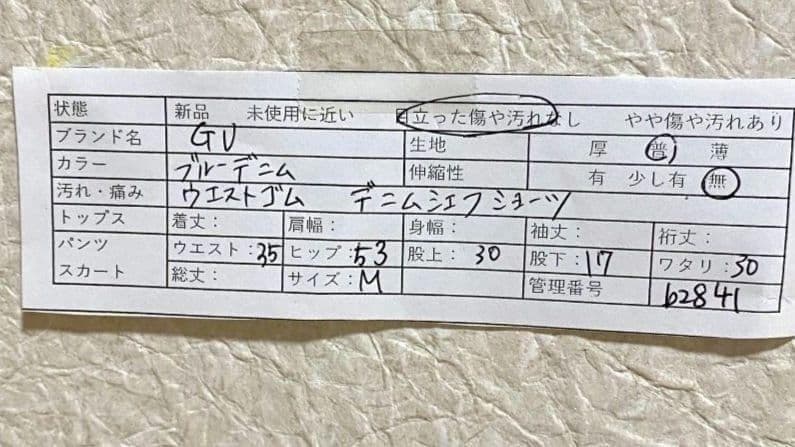 状態 新品 未使用に近い 目立った傷や汚れなし やや傷や汚れあり
ブランド名 GU 生地 厚 普 薄
カラー ブルーデニム 伸縮性 有 少し有 無
汚れ・痛み ウエストゴム デニムシェフショーツ
トップス 着丈： 肩幅： 身幅： 袖丈： 裄丈：
パンツ ウエスト：35 ヒップ：53 股上：30 股下：17 ワタリ：30
スカート 総丈： サイズ：M 管理番号 62841